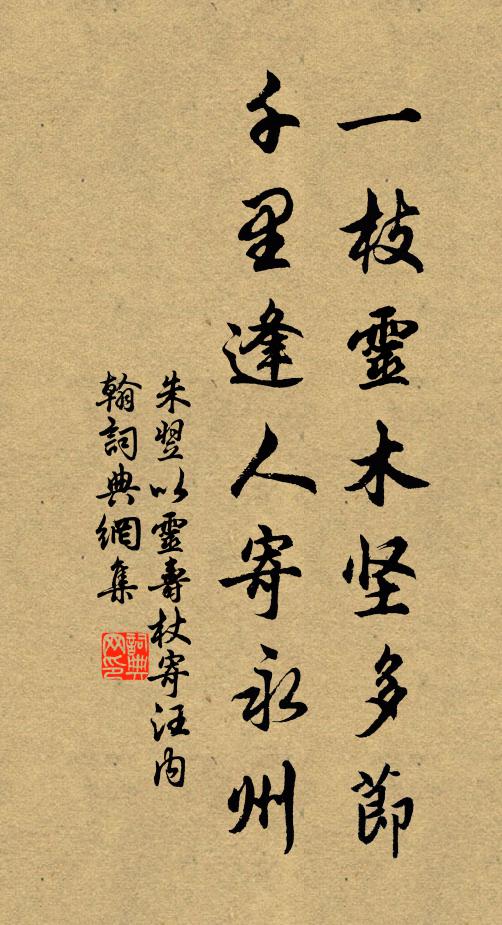 一枝靈木坚多節
千里逢人寄永州
朱翌以靈壽杖寄汪内
翰詞典網集
詞典网印